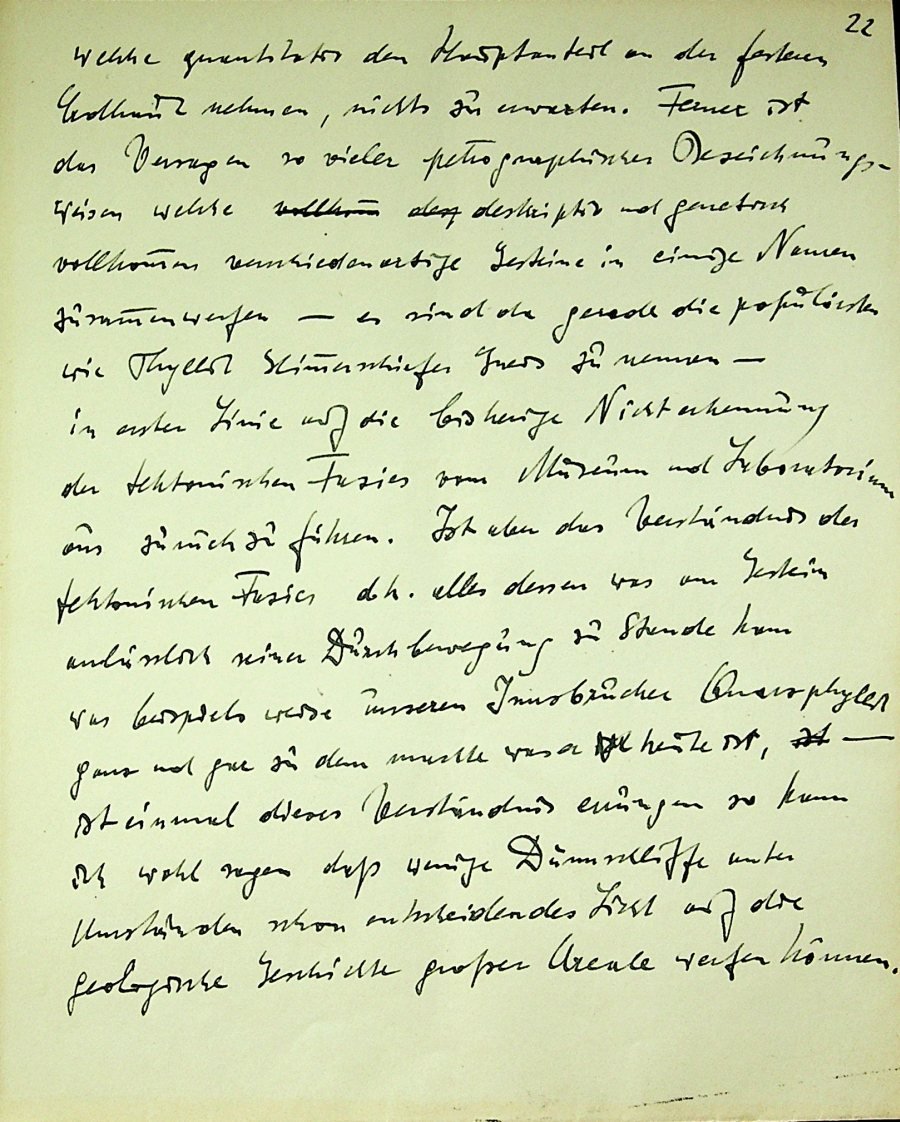 22
welche quantitativ den Hauptanteil an der festen
Erdhaut nehmen, nichts zu erwarten. Ferner ist
das Versagen so vieler petrographischer Bezeichnungs-
weisen welche vollkom̅ desk deskriptiv und genetisch
vollkom̅en verschiedenartige Gesteine in einige Namen
zusam̅enwerfen — es sind da gerade die populärsten
wie Phyllit Glim̅erschiefer Gneis zu nennen —
in erster Linie auf die bisherige Nichterkennung
der tektonischen Fazies vom Museum und Laboratorium
aus zurückzuführen. Ist aber das Verständnis der
tektonischen Fazies d.h. alles dessen was am Gestein
anlässlich seiner Durchbewegung zu Stande kam
was beispielsweise unseren Innsbrucker Quarzphyllit
ganz und gar zu dem machte was er heute ist, ist —
ist einmal dieses Verständnis errungen so kann
ich wohl sagen daß wenige Dünnschliffe unter
Umständen schon entscheidendes Licht auf die
geologische Geschichte großer Areale werfen können.